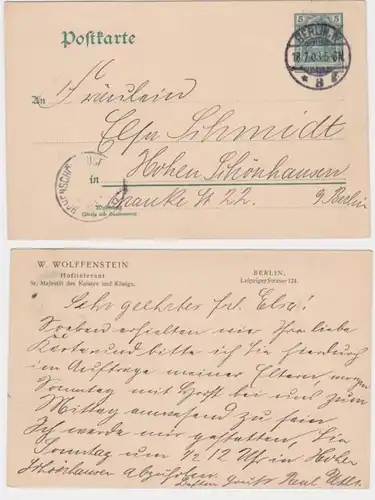 Postkarte
5
BERLIN, N.
18.7.03.5-6N.
* 8 f
An Fräulein
Elsa Schmidt
in Hohen Schönhausen
Wohnung
(Straße und Hausnummer)
Franke St 22. b/Berlin
W. WOLFFENSTEIN
Hoflieferant
Sr. Majestät des Kaisers und Königs.
BERLIN,
Leipziger Strasse 124.
Sehr geehrtes Frl. Elsa!
Soeben erhielten wir Ihre liebe
Karte und bitte ich Sie hierdurch
im Auftrage meiner Eltern, morgen
Sonntag mit Horst bei uns zum
Mittag anwesend zu sein
Ich werde mir gestatten, Sie
Sonntag um ½ 12 Uhr in Hohen
Schönhausen abzuholen.
Paul